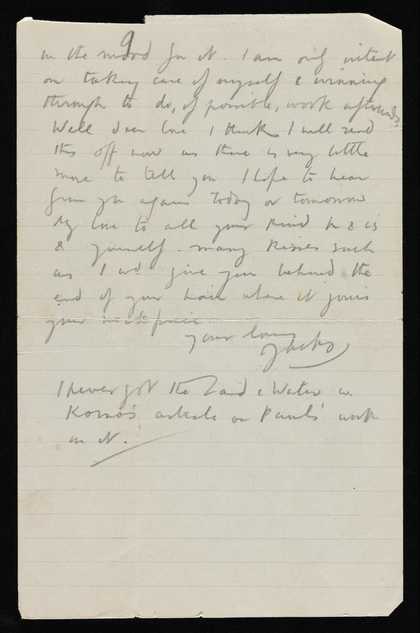 9
in the mood for it. I am only intent
on taking care of myself & winning
through to do, if possible, work afterwards.
Well dear love I think I will send
this off now as there is very little
more to tell you I hope to hear
from you again today or tomorrow
My love to all your kind
& yourself. many kisses such
as I wd give you behind the
end of your hair where it joins
your
your loving
I never got the Land & Water w
article on Paul's work
in it.